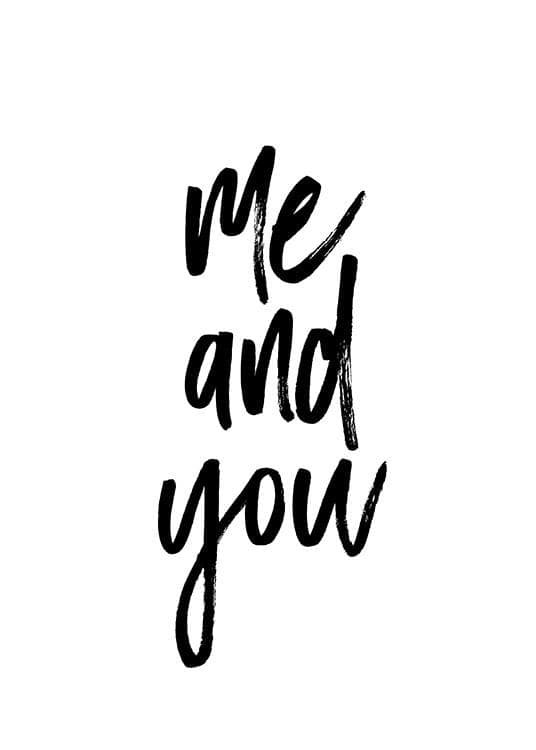 me
and
you